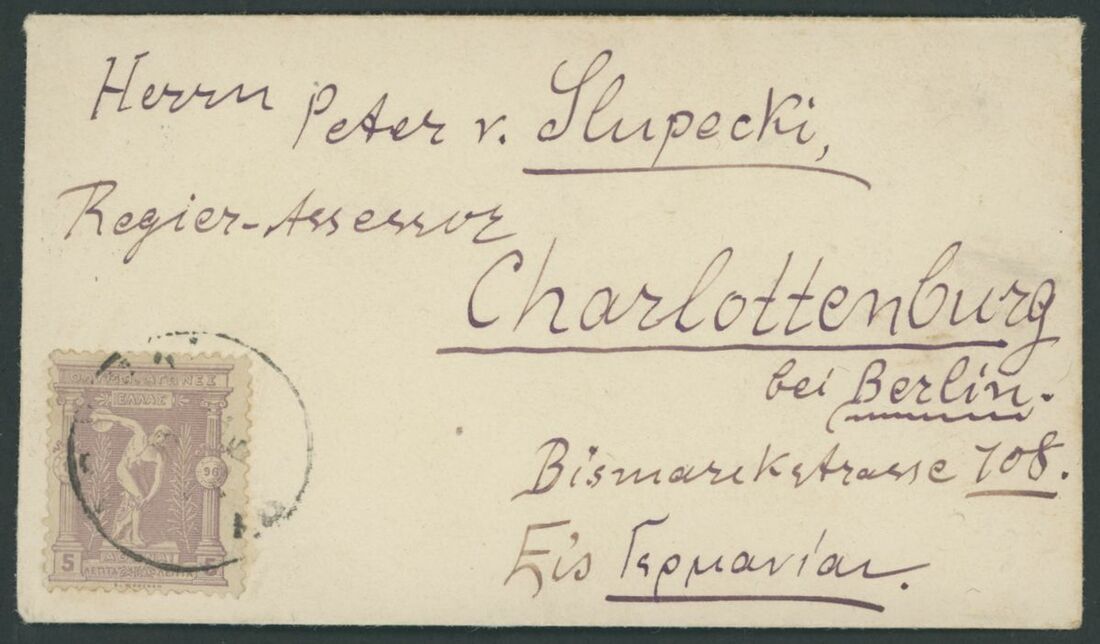 Herrn Peter v. Slupecki,
Regier-Assessor
Charlottenburg
bei Berlin.
Bismarckstrasse 108.
Εἰς Γερμανίαν.
ΕΛΛΑΣ
96
5 5